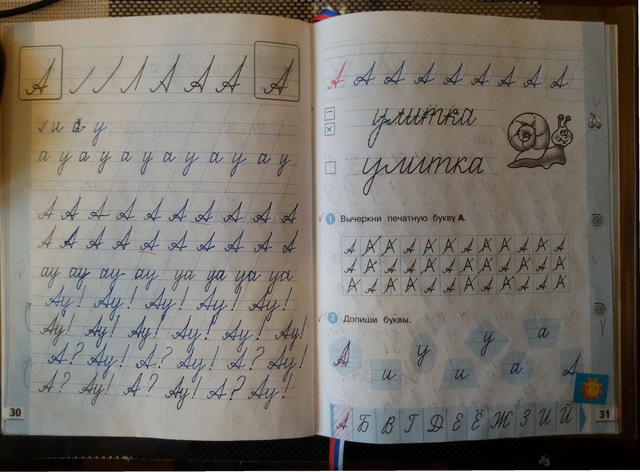 А А А А А
и а у
а у а у а у а у а у а у
А А А А А А А А А А
А А А А А А А А А А
ау ау ау ау уа уа уа уа
Ау! Ау! Ау! Ау! Ау!
Ау! Ау! Ау! Ау! Ау! Ау!
А? Ау! А? Ау! А? Ау!
А? Ау! А? Ау! А? Ау!
30
А А А А А А А А А
улитка
улитка
1 Вычеркни печатную букву А.
А А А А А А А А А А А А
А А А А А А А А А А А А
А А А А А А А А А А А А
2 Допиши буквы.
у у а
А и и а А
А Б В Г Д Е Ё Ж З И Й
31